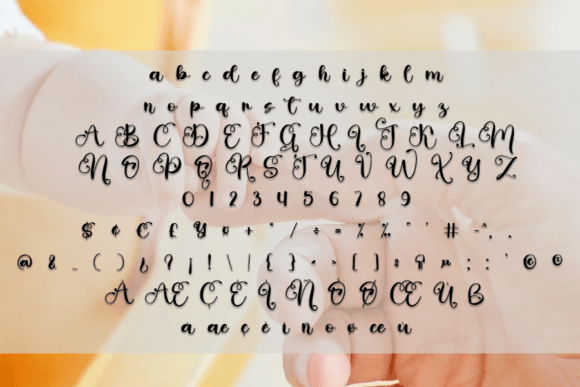 a b c d e f g h i j k l m
n o p q r s t u v w x y z
A B C D E F G H I J K L M
N O P Q R S T U V W X Y Z
0 1 2 3 4 5 6 7 8 9
$ ¢ € £ ¥ ¤ + * / ÷ = % ‰ " ' # - ^ , .
@ & _ ( ) ¿ ? ¡ ! \ | { } < > [ ] § ¶ µ ; : ' © ®
A Æ Ç E I N O Ø Œ U ß
a æ ç e i n o ø œ u